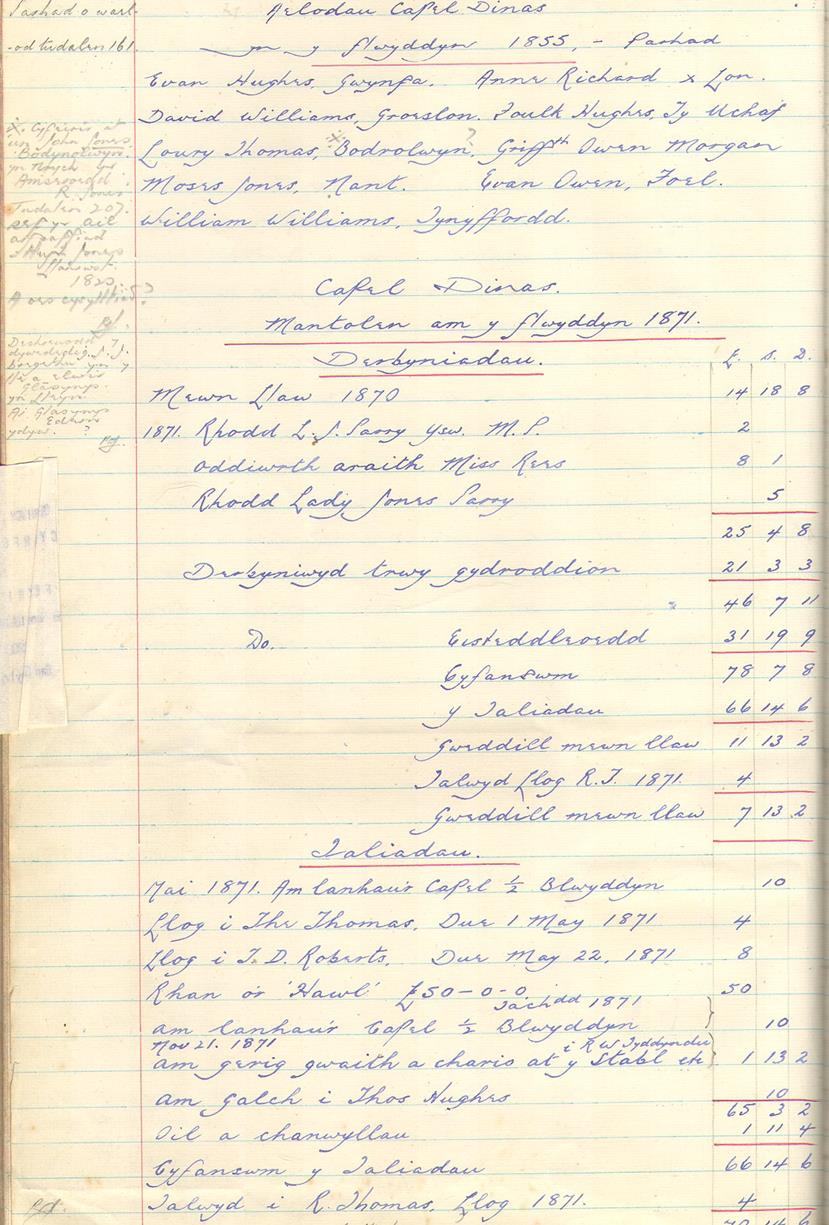 Aelodau Capel Dinas
yn y flwyddyn 1855, – Parhad
Evan Hughes, Gwynfa. Anne Richard x Lon.
David Williams, Groeslon. Foulk Hughes, Ty Uchaf
Loury Thomas, * Bodrolwyn? Griffth Owen Morgan
Moses Jones, Nant. Evan Owen, Foel.
William Williams, Tynyffordd.
Parhad o
-od tudalen 161
un John Jones
Bodynolwyn
R. Jones
Tudalen 207.
sef yr ail
1820
Capel Dinas.
Mantolen am y flwyddyn 1871.
Derbyniadau. £. S. D.
Mewn Llaw 1870 14 18 8
1871. Rhodd L. J. Parry Ysw. M.P. 2
Oddiwrth araith Miss Rees 8 1
Rhodd Lady Jones Parry 5
25 4 8
Derbyniwyd trwy gydroddion 21 3 3
46 7 11
Do. Eisteddleoedd 31 19 9
Cyfanswm 78 7 8
Y Taliadau 66 14 6
Gweddill mewn llaw 11 13 2
Talwyd Llog R.T. 1871. 4
Gweddill mewn llaw 7 13 2
Taliadau.
Mai 1871. Am lanhau'r Capel ½ Blwyddyn 10
Llog i The Thomas, Due 1 May 1871 4
Llog i T. D. Roberts, Due May 22, 1871 8
Rhan o'r 'Hawl' £50–0–0. 50
Tachdd 1871
am lanhau'r Capel ½ Blwyddyn 10
Nov 21. 1871 i R W Tyddyndu
am gerig gwaith a chario at y Stabl etc 1 13 2
Am Galch i Thos Hughes 10
65 3 2
Oil a chanwyllau 1 11 4
Cyfanswm y Taliadau 66 14 6
Talwyd i R. Thomas, Llog 1871. 4
70 14 6